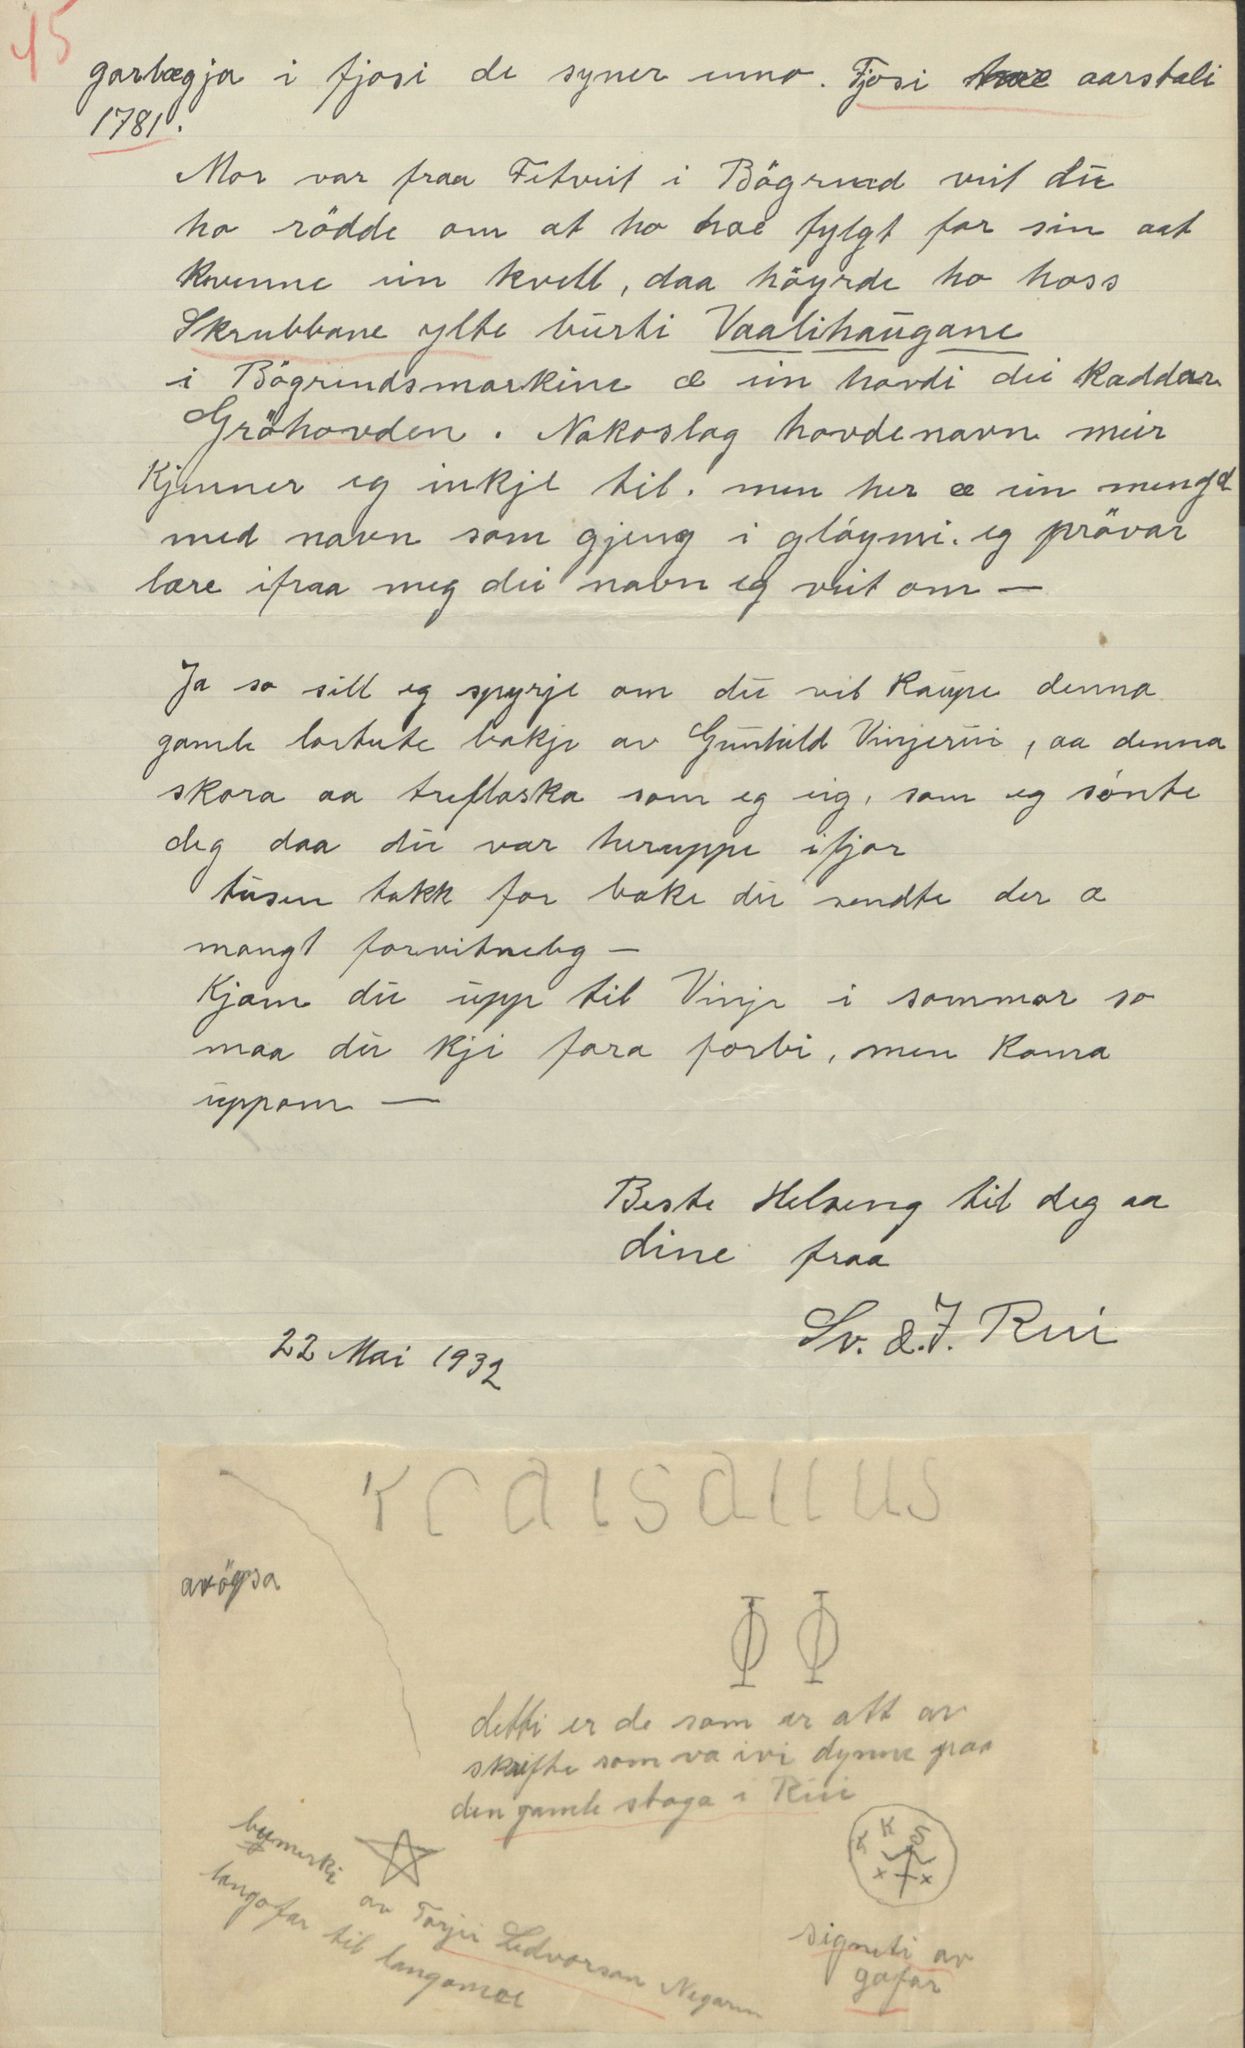 45
garlægja i fjosi de syner enno. Fjosi hae aarstali
1781.
Mor var fraa Fitveit i Bögrend veit du
ho rödde om at ho hae fylgt far sin aat
kvenne ein kvell, daa höyrde ho hoss
Skrubbane ylte burti Vaalihaugane
i Bögrendsmarkine æ ein hovdi dei kaddar
Gröhovden. Nakoslag hovdenavn meir
Kjenner eg inkje til. men her æ ein mengd
med navn som gjeng i glöymi. eg prövar
lære ifraa meg dei navn eg veit om —
Ja so sill eg spyrje om du vil kaupe denna
gamle lartute bakje av Gunhild Vinjerui, aa denna
skora aa treflaska som eg eig, som eg sönte
deg daa du var heruppe ifjor
tusen takk for boke du sendte der æ
mangt forvitneleg —
Kjem du upp til Vinje i sommar so
maa du kji fara forbi, men koma
uppom —
Beste Helseng til deg aa
dine fraa
Sv. &. J. Rui
22 Mai 1932
Kraisallus
avögsa
detti er de som er att av
skrifte som va ivi dynne paa
den gamle stoga i Rui
bumerki av Torjei Sedvorson Negarn
langofar til langomor
K K S
signeti av
gofar